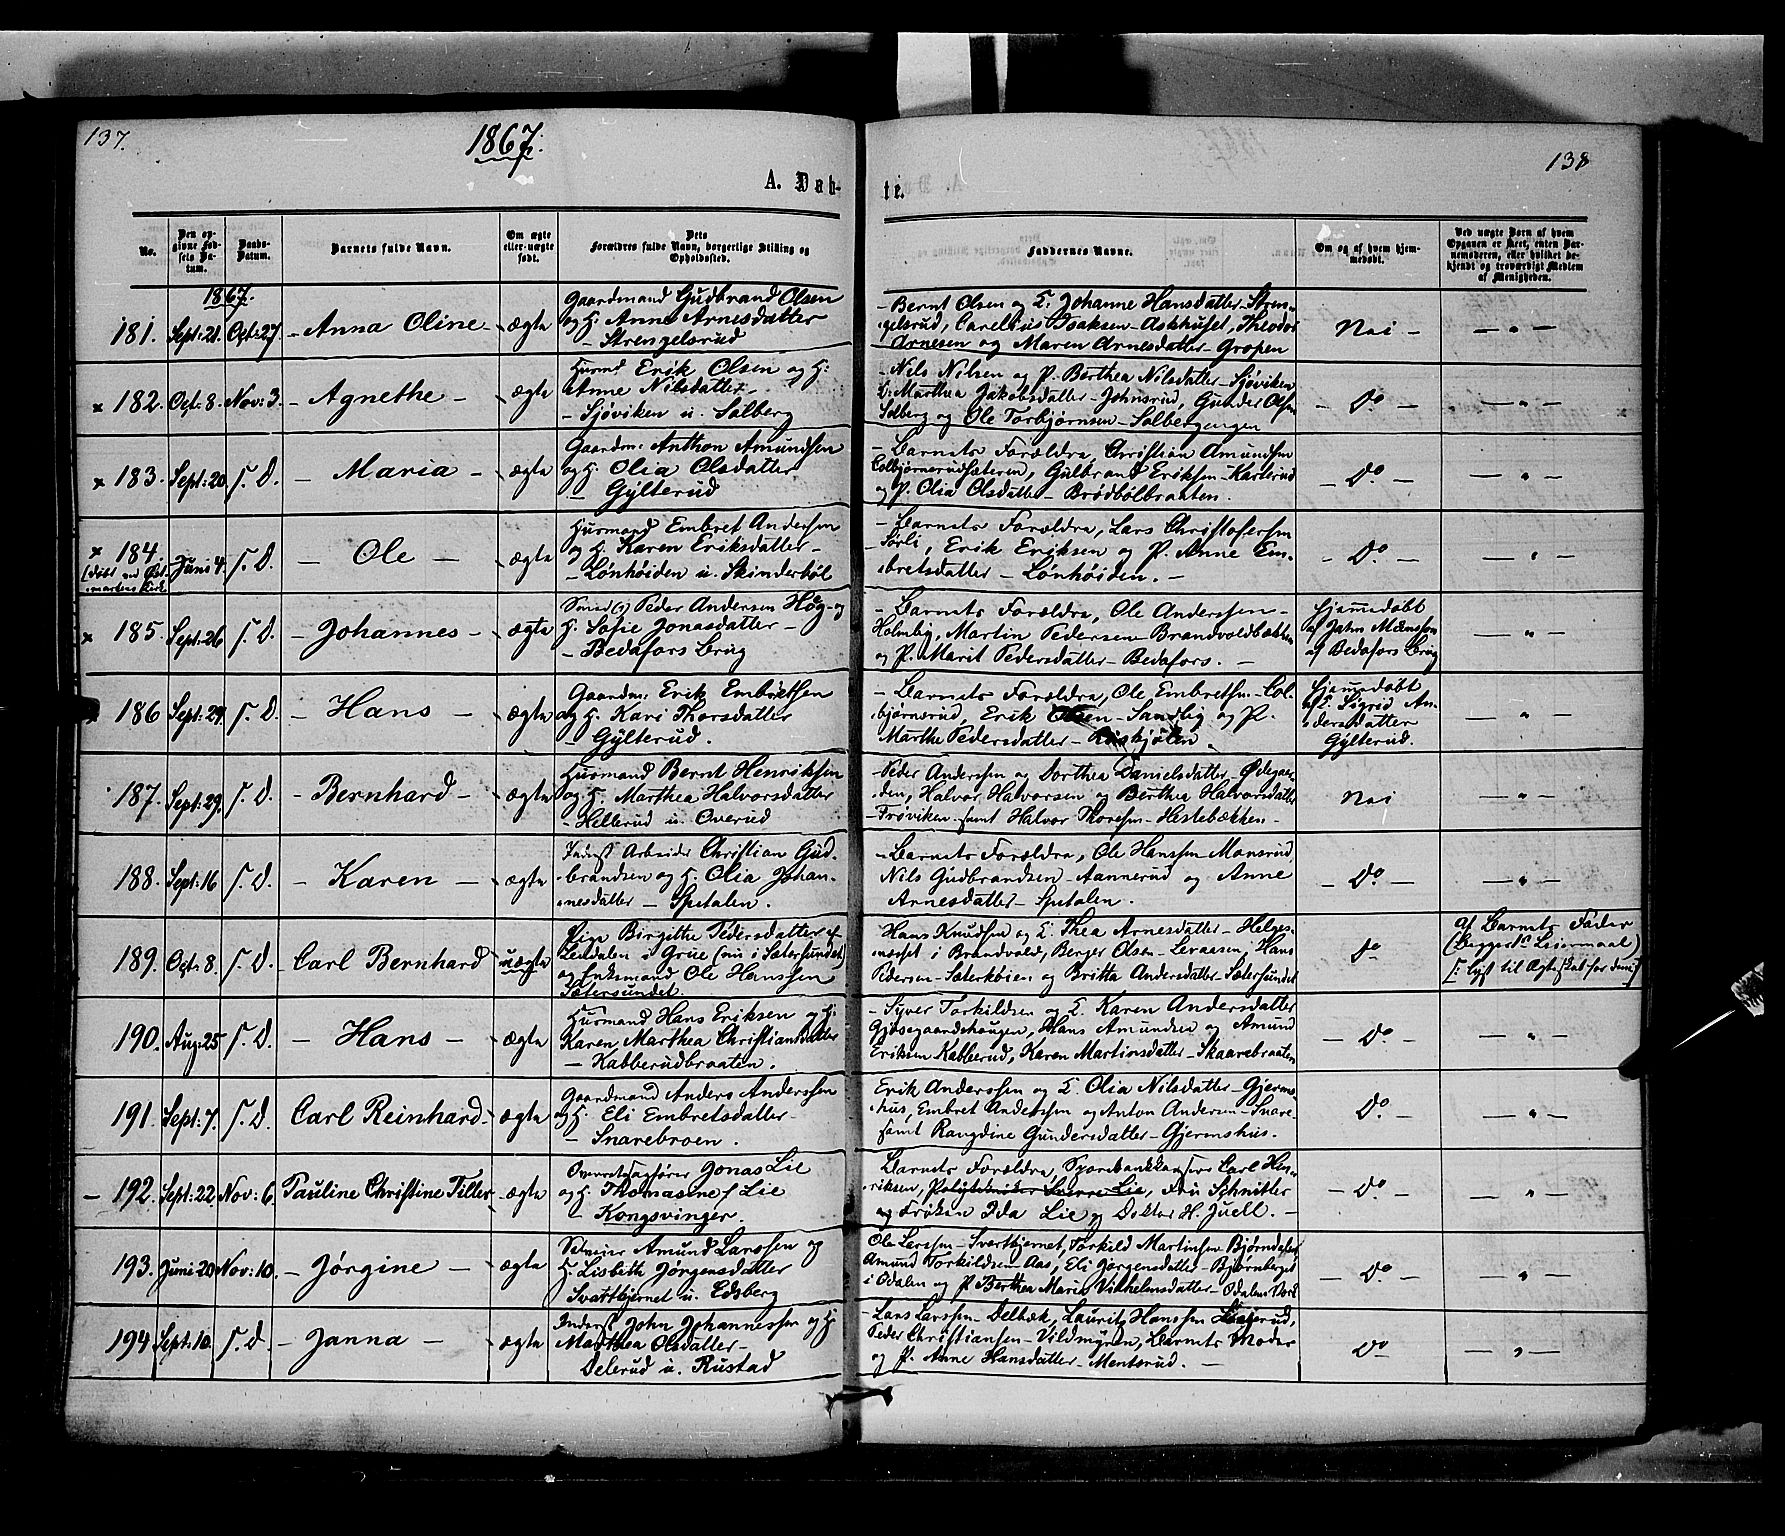 137.
1867.
138
A. Døb-
te.
No.
Den op-
givne Fød-
sels Da-
tum.
Daabs-
Datum.
Barnets fulde Navn.
Om ægte
eller uægte
født.
Dets
Forældres fulde Navn, borgerlige Stilling og
Opholdssted.
Faddernes Navne.
Om og af hvem hjem-
medøbt.
Ved uægte Børn af hvem
Opgaven er skeet, enten Bar-
nemoderen, eller hvilket be-
kjendt og troværdigt Medlem
af Menigheden.
1867.
181. Sept: 21. Oct: 27. - Anna Oline - ægte
Gaardmand Gudbrand Olsen
og H. Anne Arnesdatter
- Strengelsrud
- Bernt Olsen og E. Johanne Hansdatter - Stren-
gelsrud, Carelius Isaksen - Askhuset, Theodor
Arnesen og Maren Arnesdatter - Gropen
Nei -
— " —
x 182. Oct: 8. Nov: 3. - Agnethe - ægte
Husmd Erik Olsen og H:
Anne Nilsdatter -
- Sjøviken u. Solberg
- Nils Nilsen og P. Berthea Nilsdatter - Sjøviken
E: Marthea Jakobsdatter - Johnsrud, Gunder Olsen
Solberg og Ole Torbjørnsen - Solbergengen
- Do -
— " —
x 183. Sept: 20. S. D. - Maria - ægte
Gaardm: Anthon Amundsen
og H: Olia Olsdatter
- Gylterud
- Barnets Forældre, Christian Amundsen
Colbjørnsrudsæteren, Gulbrand Eriksen - Karterud
og P. Olia Olsdatter - Brødbølbraaten.
- Do -
— " —
x 184.
(døbt ved Øst-
markens Kirke
Juni 4. S. D. - Ole - ægte
Husmand Embret Andersen
og H. Karen Eriksdatter -
- Lønhøiden u. Skinderbøl
- Barnets Forældre, Lars Christofersen
Sørli, Erik Eriksen og P. Anne Em-
bretsdatter - Lønhøiden. -
- Do -
— " —
x 185. Sept: 26 S. D. - Johannes - ægte
Smed Peder Andersen Høg - og
H. Sofie Jonasdatter -
- Bedafors Brug
- Barnets Forældre, Ole Anderssen -
Holmbig, Martin Pedersen - Brandvoldbækken
og P. Marit Pedersdatter - Bedafors. -
Hjemmedøbt
af Jahn Mænsson
af Bedafors Brug
— " —
186 Sept: 29. S. D. - Hans - ægte
Gaardm: Erik Embretsen
og H. Kari Thorsdatter
- Gylterud.
- Barnets Forældre, Ole Embretsen - Col-
bjørnsrud, Erik Olsen - Sandbig og P.
Marthe Pedersdatter - Røskjølen
Hjemmedøbt
af E. Sigrid An-
dersdatter
Gylterud.
— " —
187. Sept: 29. S. D. - Bernhard - ægte
Husmand Bernt Henriksen
og H. Marthea Halvorsdatter
- Hellerud u. Overud
- Peder Anderssen og Dorthea Danielsdatter - Ødegaar-
den, Halvor Halvorsen og Berthea Halvorsdatter
- Frøviken - samt Halvor Thoresen - Hestebækken -
Nei
— " —
188. Sept: 16 S. D. - Karen - ægte
Inderst Arbeider Christian Gud-
brandsen og H. Olia Johan-
nesdatter - Spetalen.
- Barnets Forældre, Ole Hanssen Monsrud,
Nils Gudbrandsen - Aannerud og Anne
Arnesdatter - Spetalen.
- Do -
— " —
189. Oct: 8. S. D. - Carl Bernhard uægte
Pige Birgitte Pedersdatter af
Leirdalen i Grue (nu i Sætersundet)
og Enkemand Ole Hanssen
Sætersundet.
Hans Knudsen og E. Thea Arnesdatter - Helges-
næset i Brandvold, Berger Olsen - Levaasen, Hans
Pedersen - Sæterkøien og Britta Andersdatter - Sætersundet
Do
af Barnets Fader
(Begges 1ste Leiermaal)
[: lyst til Ægteskab for dem:]
190. Aug: 25 S. D. - Hans - ægte
Husmand Hans Eriksen og H:
Karen Marthea Christiansdatter
- Kabberudbraaten.
- Syver Torkildsen og E. Karen Andersdatter
Gjøsegaardshaugen, Hans Amundsen og Amund
Eriksen Kabberud, Karen Martinsdatter - Skaarebraaten
- Do -
— " —
191. Sept: 7. S. D. Carl Reinhard - ægte
Gaardmand Anders Anderssen
og H. Eli Embretsdatter -
- Snarebroen.
Erik Anderssen og E. Olia Nilsdatter - Gjerms-
hus, Embret Anderssen og Anton Andersen - Snare-
samt Rangdine Gundersdatter - Gjermshus.
Do -
— " —
- 192. Sept: 22. Nov: 6. Pauline Christine Tiller - ægte
Overretssagfører Jonas Lie
og H. Thomasine f Lie
- Kongsvinger.
Barnets Forældre, Sparebankkasserer Carl Hen-
riksen, Polytekniker Sverre Lie, Fru Schnitler
og Frøken Ida Lie og Doktor H. Juell. -
- Do -
— " —
193. Juni 20. Nov: 10. - Jørgine - ægte
Selveier Amund Larssen og
H. Lisbeth Jørgensdatter
Svartkjernet u. Edsberg
Ole Larssen - Svartkjernet, Torkild Martinsen Bjørndalen,
Amund Torkildsen Aas, Eli Jørgensdatter - Bjørnberget
i Odalen og P. Berthea Maria Vilhelmsdatter - Odalens Verk
- Do -
— " —
194 Sept: 10. S. D. - Janna - ægte
Inderst John Johannessen og H
Marthea Olsdatter -
Delerud u. Rustad
- Lars Larssen - Delbæk, Lauritz Hanssen
Peder Christiansen - Vildmyren, Barnets Moder
og P. Anne Hansdatter - Mentsrud. -
Do -
— " —